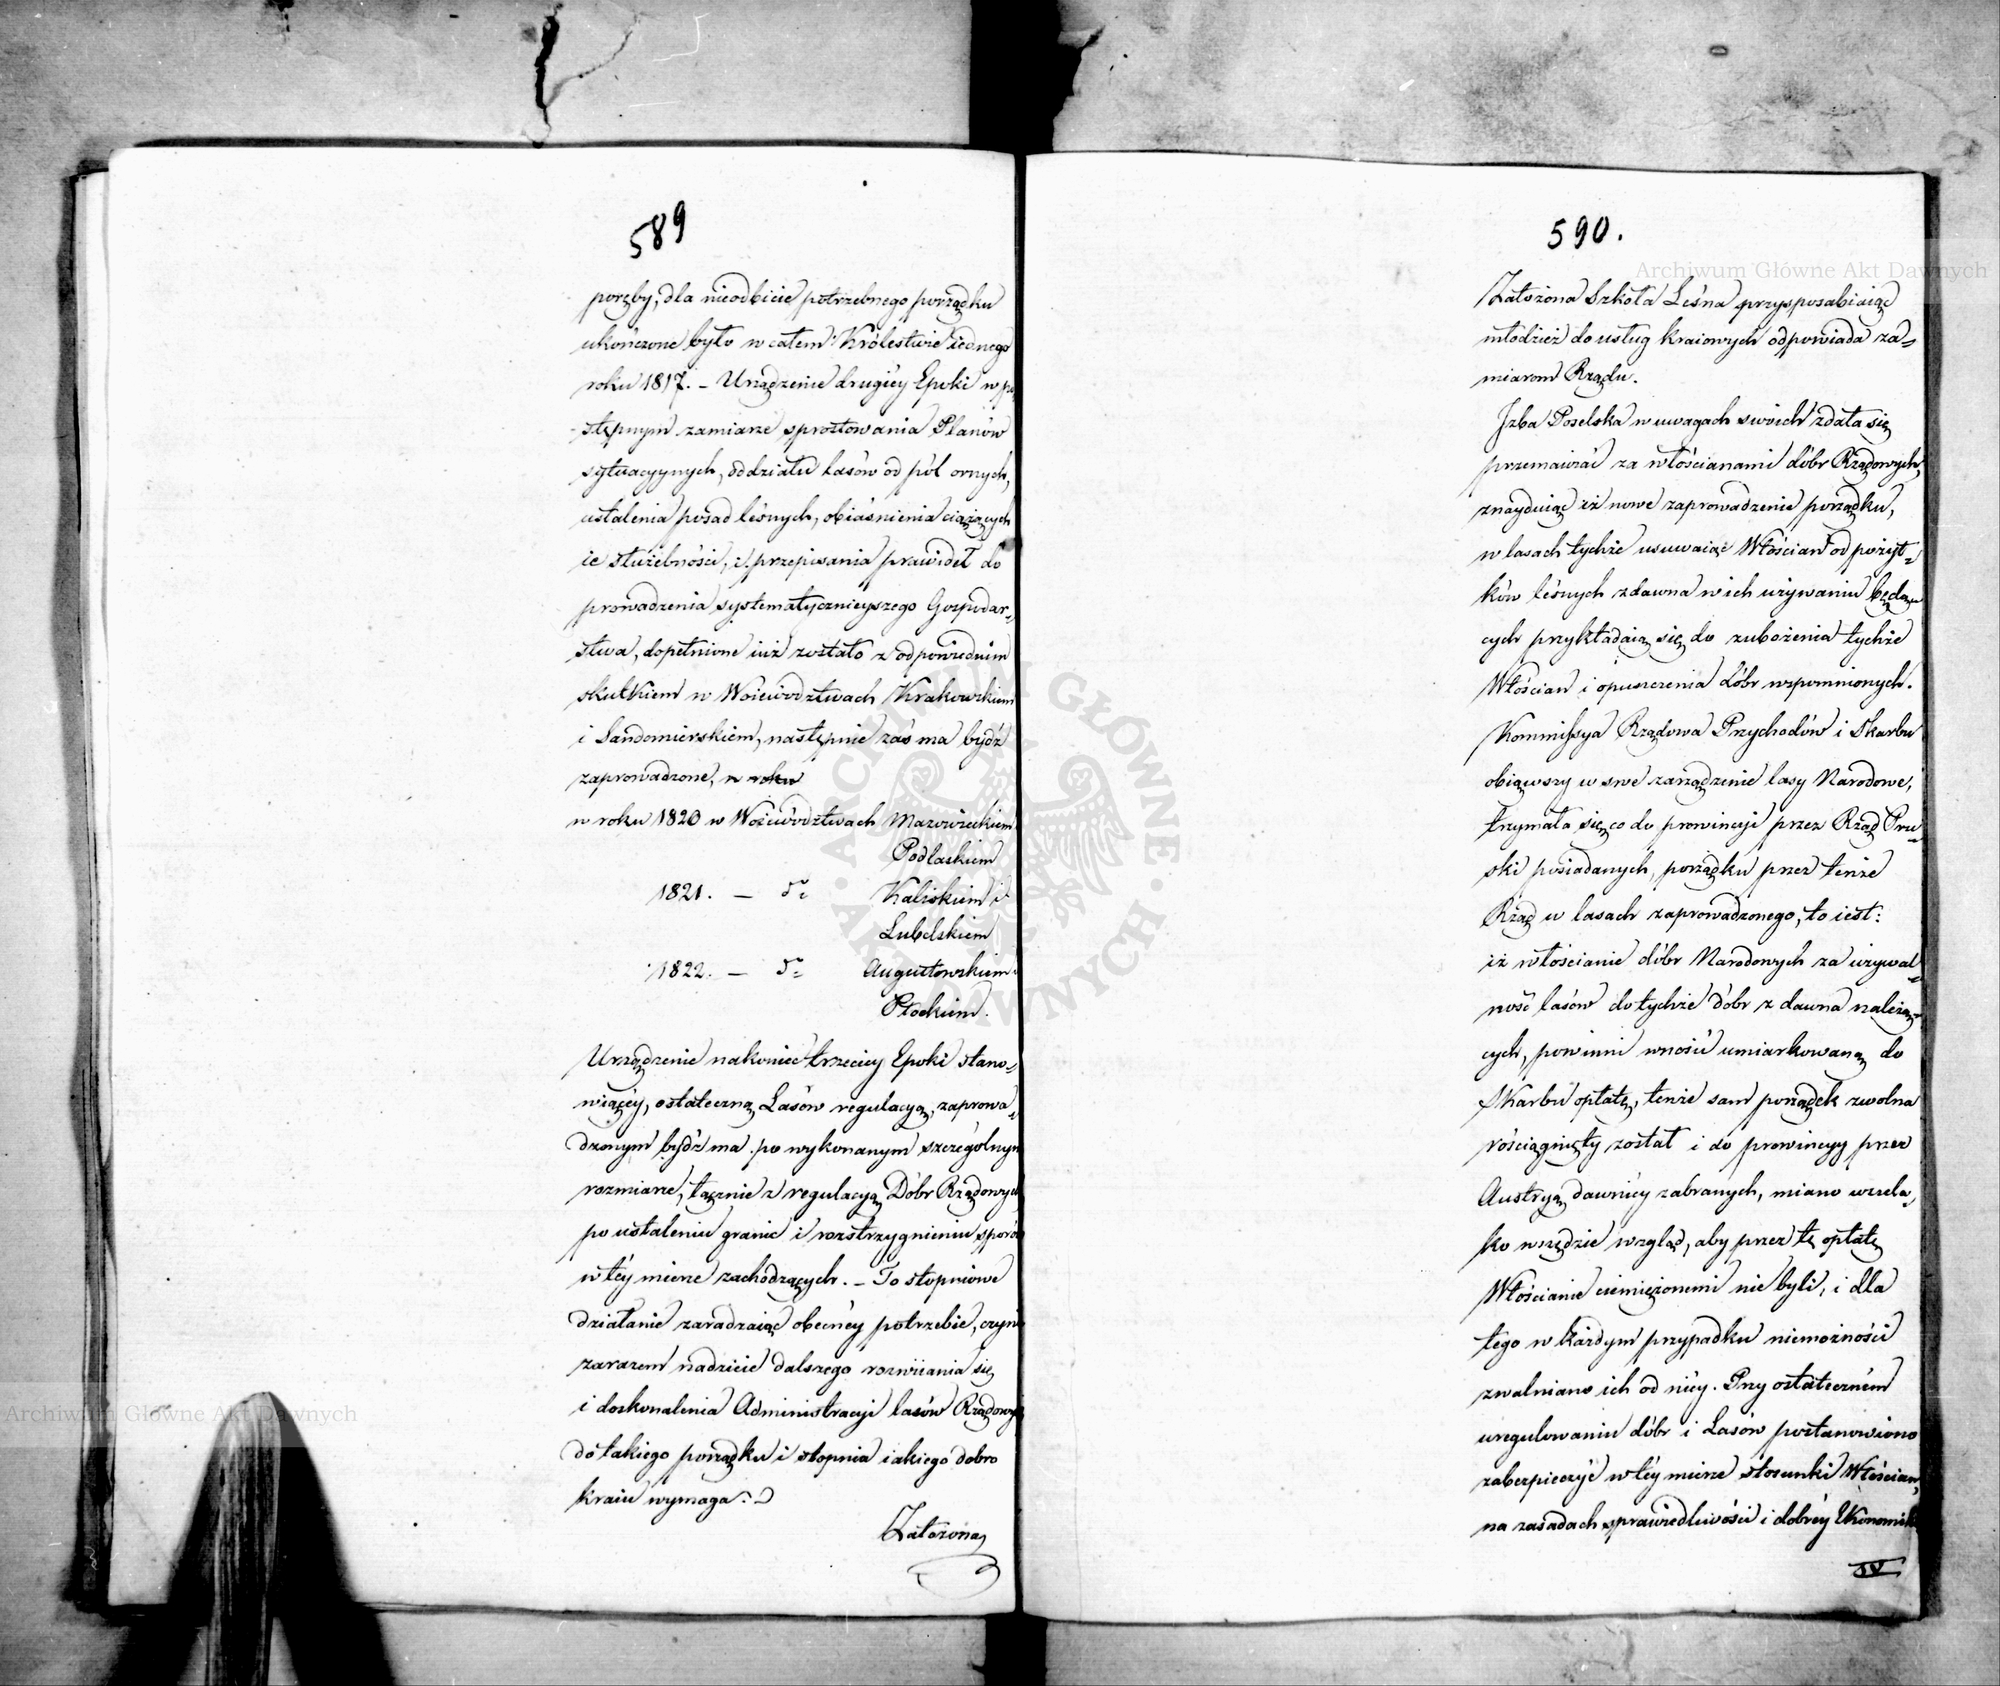 589
poręby, dla nieodbicie potrzebnego porządku
ukończone było w całem Królestwie iednego
roku 1817. – Urządzenie drugiéy Epoki w po
stępnym zamiarze sprostowania Planów
sytuacyynych, oddziału lasów od pól ornych,
ustalenia posad leśnych, obiaśnienia ciążących
ie służebności, i przepisania prawideł do
prowadzenia systematycznieyszego Gospodar-
stwa, dopełnione iuż zostało z odpowiednim
skutkiem w Woiewództwach Krakowskiem
i Sandomierskiem, następnie zaś ma bydź
zaprowadzone, w roku
w roku 1820 w Woiewództwach Mazowieckiem
Podlaskiem
1821. – do Kaliskiem i
Lubelskiem
1822. – do Augustowskiem i
Płockiem.
Urządzenie nakoniec trzeciey Epoki stano-
wiącéy, ostateczną Lasów regulacyą, zaprowa-
dzonym bydź ma po wykonanym szczególnym
rozmiarze, łącznie z regulacyą Dóbr Rządowych
po ustaleniu granic i rozstrzygnieniu sporów
w téy mierze zachodzących. – To stopniowe
działanie zaradzaiąc obecnéy potrzebie, czyni
zarazem nadzieie dalszego rozwiiania się
i doskonalenia Administracyi lasów Rządowych
do takiego porządku i stopnia iakiego dobro
kraiu wymaga.
Założona
590.
Założona Szkoła Leśna przysposabiaiąc
młodzież do usług kraiowych odpowiada za-
miarom Rządu.
Izba Poselska w uwagach swoich zdała się
przemawiać za włościanami dóbr Rządowych,
znayduiąc iż nowe zaprowadzenie porządku,
w lasach tychże usuwaiąc Włościan od pożyt-
ków leśnych zdawna w ich używaniu będą-
cych przykładaią się do zubożenia tychże
Włościan i opuszczenia dóbr wspomnionych.
Kommissya Rządowa Przychodów i Skarbu
obiąwszy w swe zarządzenie lasy Narodowe,
trzymała się co do prowincyi przez Rząd Pru-
ski posiadanych, porządku przez tenże
Rząd w lasach zaprowadzonego, to iest:
iż włościanie dóbr Narodowych za używal-
ność lasów do tychże dóbr z dawna należą-
cych, powinni wnosić umiarkowaną do
Skarbu opłatę, tenże sam porządek zwolna
rościągnięty został i do prowincyy przez
Austryą dawniéy zabranych, miano wszela-
ko wszędzie wzgląd, aby przez tę opłatę
Włościanie ciemiężonemi nie byli, i dla
tego w każdym przypadku niemożności
zwalniano ich od niéy. Przy ostateczném
uregulowaniu dóbr i Lasów postanowiono
zabezpieczyć w téy mierze stosunki Włościan,
na zasadach sprawiedliwości i dobréy Ekonomiki
IV
Archiwum Główne Akt Dawnych
Archiwum Główne Akt Dawnych
ARCHIWUM GŁÓWNE AKT DAWNYCH